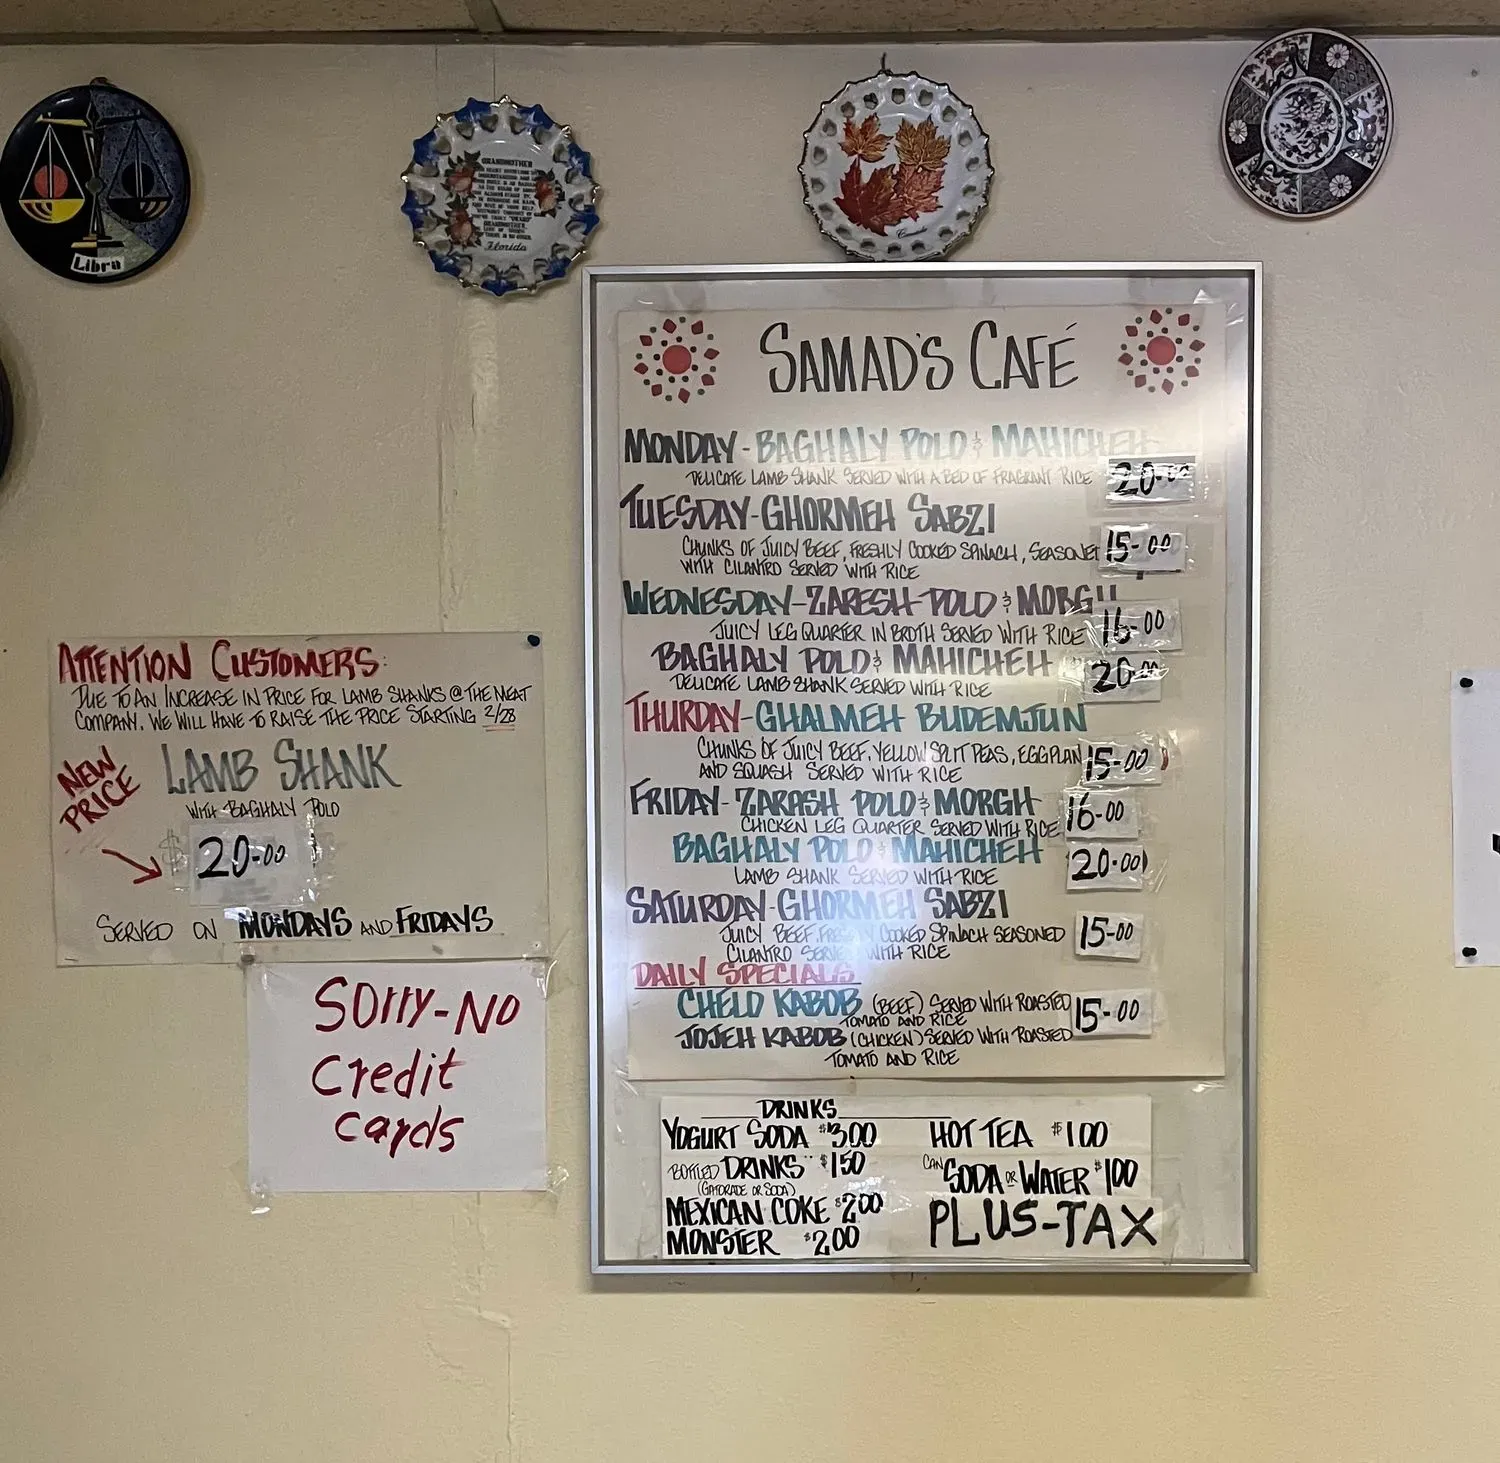 Libra
GRANDMOTHER
GRANDMOTHER
Florida
Canada
SAMAD'S CAFÉ
MONDAY-BAGHALY POLO & MAHICHEH
DELICATE LAMB SHANK SERVED WITH A BED OF FRAGRANT RICE 20-00
TUESDAY-GHORMEH SABZI
CHUNKS OF JUICY BEEF, FRESHLY COOKED SPINACH, SEASONED 15-00
WITH CILANTRO SERVED WITH RICE
WEDNESDAY-ZARESH POLO & MORGH
JUICY LEG QUARTER IN BROTH SERVED WITH RICE 16-00
BAGHALY POLO & MAHICHEH
DELICATE LAMB SHANK SERVED WITH RICE 20-00
THURDAY-GHALMEH BUDEMJUN
CHUNKS OF JUICY BEEF, YELLOW SPLIT PEAS, EGGPLAN 15-00
AND SQUASH SERVED WITH RICE
FRIDAY-ZARASH POLO & MORGH
CHICKEN LEG QUARTER SERVED WITH RICE 16-00
BAGHALY POLO & MAHICHEH
LAMB SHANK SERVED WITH RICE 20-00
SATURDAY-GHORMEH SABZI
JUICY BEEF, FRESHLY COOKED SPINACH SEASONED 15-00
CILANTRO SERVED WITH RICE
DAILY SPECIALS
CHELO KABOB (BEEF) SERVED WITH ROASTED 15-00
TOMATO AND RICE
JOJEH KABOB (CHICKEN) SERVED WITH ROASTED
TOMATO AND RICE
DRINKS
YOGURT SODA $3.00 HOT TEA $1.00
BOTTLED DRINKS $1.50 CAN SODA OR WATER $1.00
(GATORADE OR SODA)
MEXICAN COKE $2.00 PLUS-TAX
MONSTER $2.00
ATTENTION CUSTOMERS:
DUE TO AN INCREASE IN PRICE FOR LAMB SHANKS @ THE MEAT
COMPANY. WE WILL HAVE TO RAISE THE PRICE STARTING 2/28
NEW
PRICE
LAMB SHANK
WITH BAGHALY POLO
$ 20-00
SERVED ON MONDAYS AND FRIDAYS
SORRY-NO
credit
cards